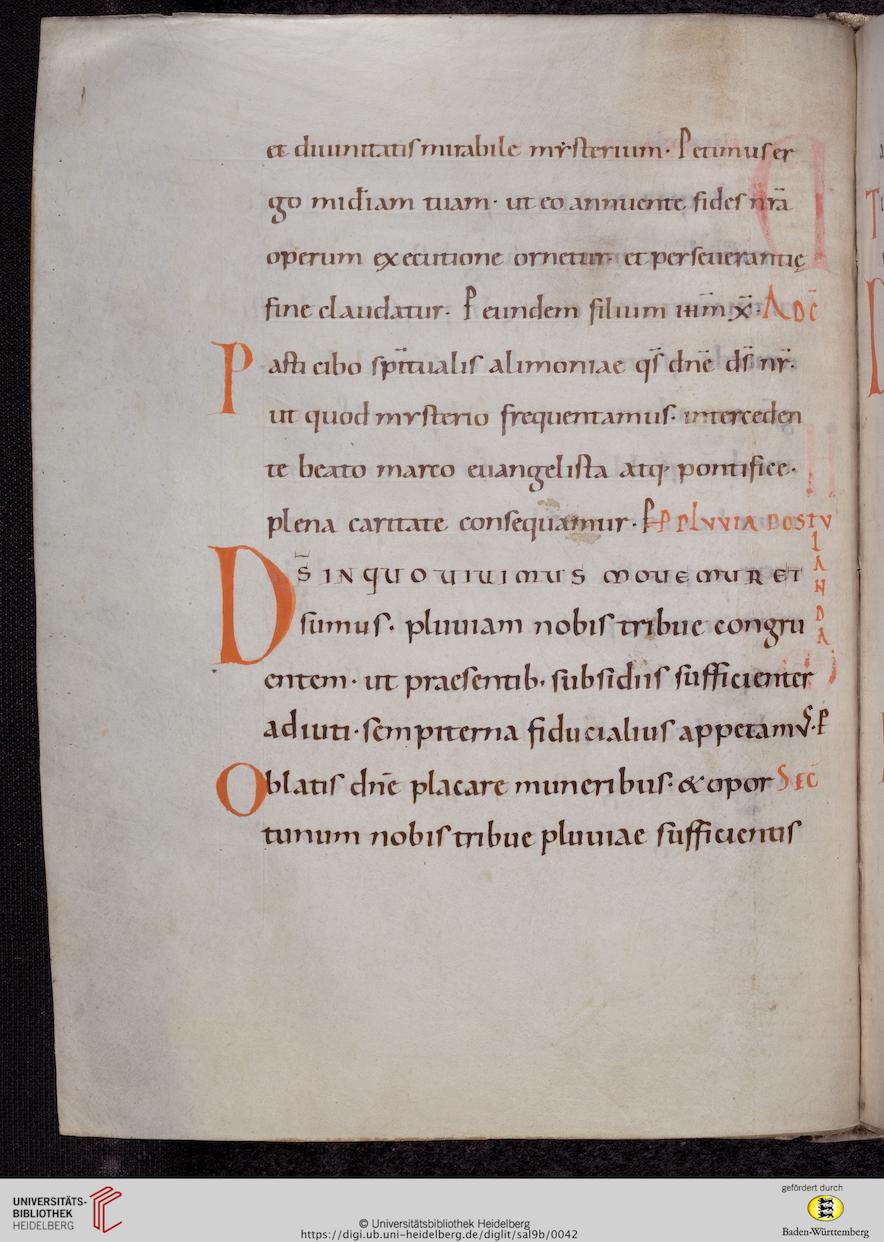 et diuinitatis mirabile mẏsterium· Petimus er
go mis̄diam tuam· ut eo annuente fides nr̄a
operum ęxecutione ornetur· et perseuerantię
fine claudatur· P eundem filium
AD C̄
P asti cibo spīritualis alimoniae qs̄ dn̄e ds̄ nr̄·
ut quod mysterio frequentamus· interceden
te beato marco euangelista atq· pontifice·
plena caritate consequamur· P
P PLVVIA POSTV
LANDA
D S̄ IN QUO UIUIMUS MOUEMUR ET
sumus· pluuiam nobis tribue congru
entem· ut praesentib· subsidiis sufficienter
adiuti· sempiterna fiducialius appetamus· P
Oblatis dn̄e placare muneribus· & opor
SEC̄
tunum nobis tribue pluuiae sufficientis
UNIVERSITÄTS-
BIBLIOTHEK
HEIDELBERG
© Universitätsbibliothek Heidelberg
https://digi.ub.uni-heidelberg.de/diglit/sal9b/0042
gefördert durch
Baden-Württemberg